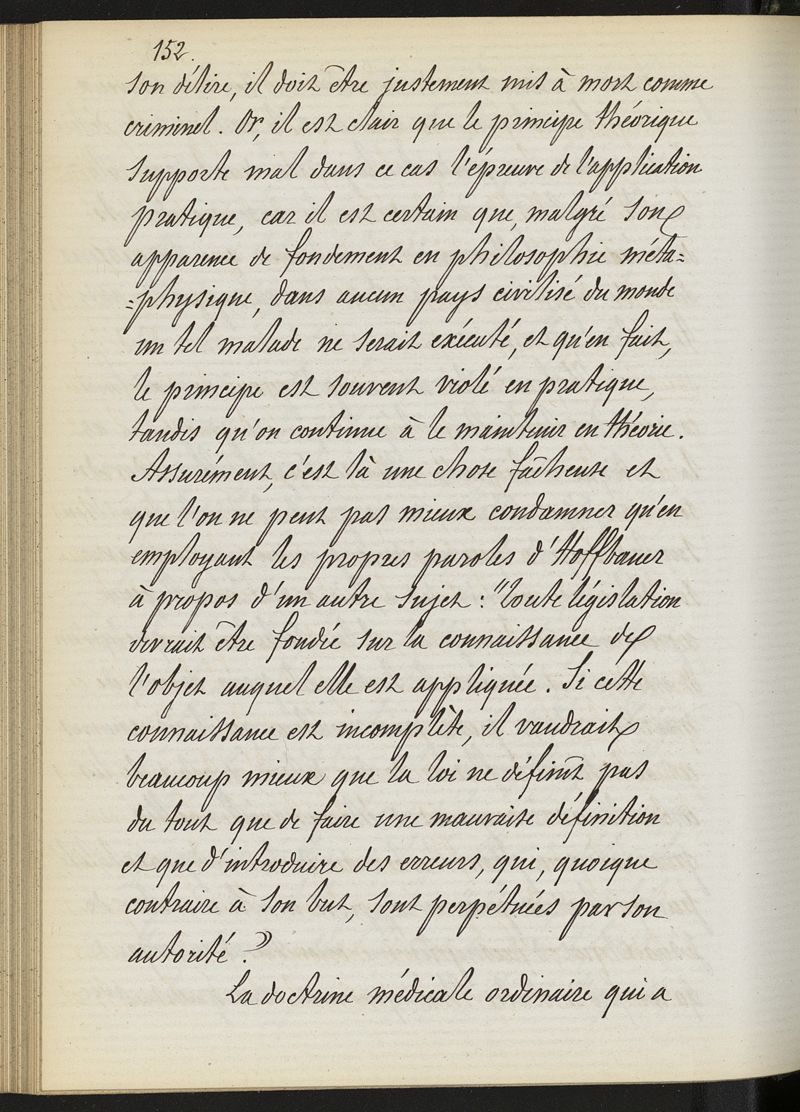 152.
son délire, il doit être justement mis à mort comme
criminel. Or, il est clair que le principe théorique
supporte mal dans ce cas l'épreuve de l'application
pratique, car il est certain que, malgré son
apparence de fondement en philosophie méta=
=physique, dans aucun pays civilisé du monde
un tel malade ne serait exécuté, et qu'en fait,
le principe est souvent violé en pratique,
tandis qu'on continue à le maintenir en théorie.
Assurément, c'est là une chose fâcheuse et
que l'on ne peut pas mieux condamner qu'en
employant les propres paroles d'Hoffbauer
à propos d'un autre sujet : "Toute législation
devrait être fondée sur la connaissance de
l'objet auquel elle est appliquée. Si cette
connaissance est incomplète, il vaudrait
beaucoup mieux que la loi ne définît pas
du tout que de faire une mauvaise définition
et que d'introduire des erreurs, qui, quoique
contraire à son but, sont perpétuées par son
autorité."
La doctrine médicale ordinaire qui a